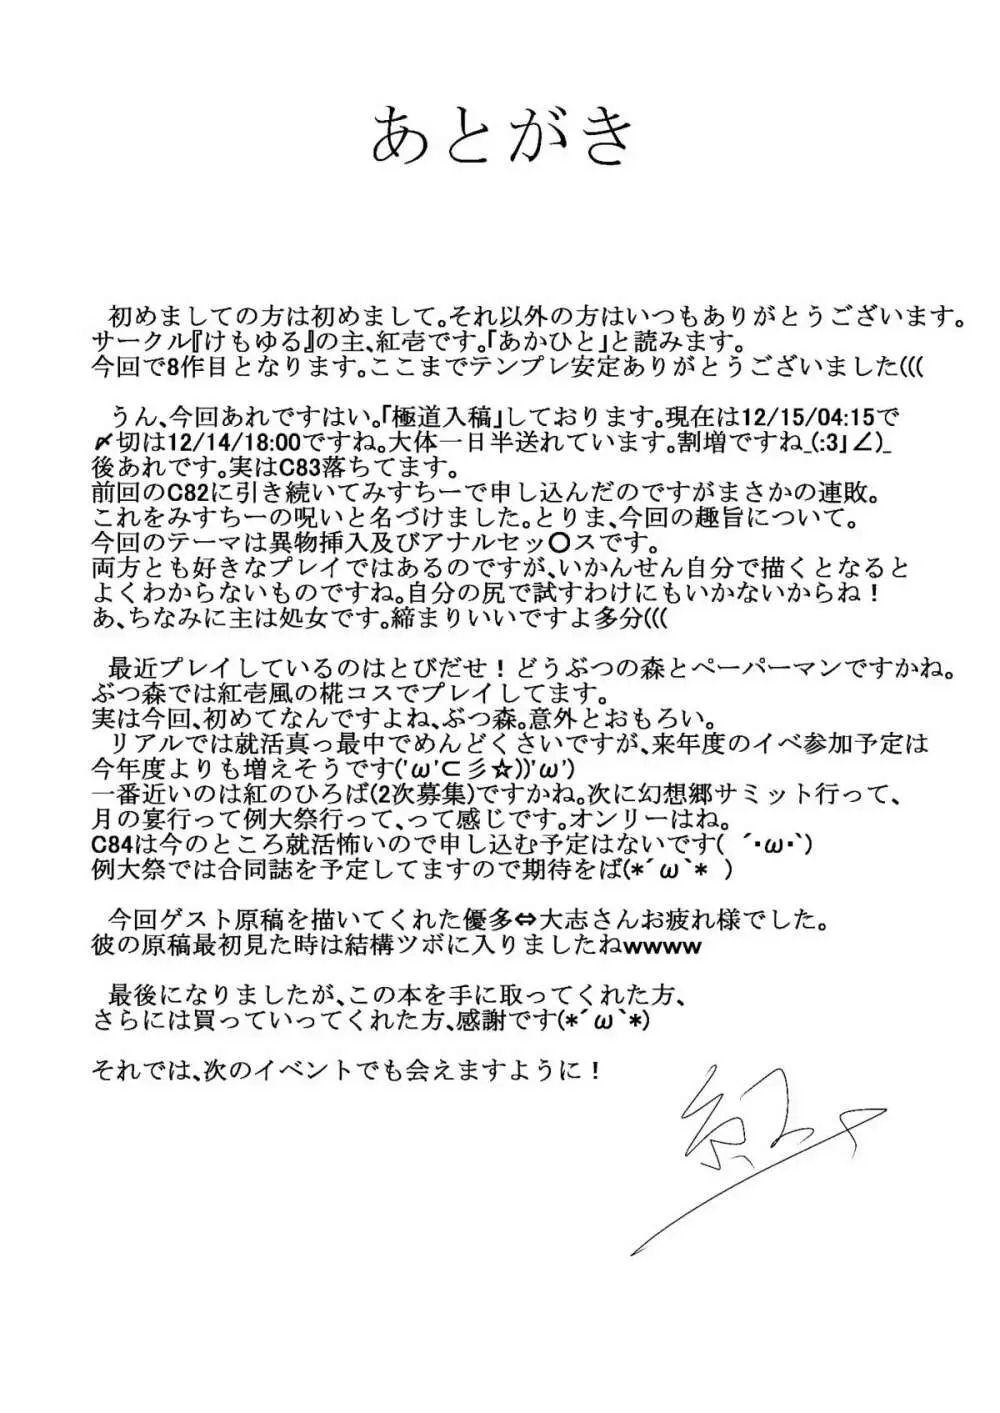 あとがき
初めましての方は初めまして。それ以外の方はいつもありがとうございます。
サークル『けもゆる』の主、紅壱です。「あかひと」と読みます。
今回で8作目となります。ここまでテンプレ安定ありがとうございました(((
うん、今回あれですはい。「極道入稿」しております。現在は12/15/04:15で
〆切は12/14/18:00ですね。大体一日半送れています。割増ですね_(:3」∠)_
後あれです。実はC83落ちてます。
前回のC82に引き続いてみすちーで申し込んだのですがまさかの連敗。
これをみすちーの呪いと名づけました。とりま、今回の趣旨について。
今回のテーマは異物挿入及びアナルセッ〇スです。
両方とも好きなプレイではあるのですが、いかんせん自分で描くとなると
よくわからないものですね。自分の尻で試すわけにもいかないからね！
あ、ちなみに主は処女です。締まりいいですよ多分(((
最近プレイしているのはとびだせ！どうぶつの森とペーパーマンですかね。
ぶつ森では紅壱風の椛コスでプレイしてます。
実は今回、初めてなんですよね、ぶつ森。意外とおもろい。
リアルでは就活真っ最中でめんどくさいですが、来年度のイベ参加予定は
今年度よりも増えそうです('ω'⊂彡☆))'ω')
一番近いのは紅のひろば(2次募集)ですかね。次に幻想郷サミット行って、
月の宴行って例大祭行って、って感じです。オンリーはね。
C84は今のところ就活怖いので申し込む予定はないです( ´･ω･`)
例大祭では合同誌を予定してますので期待をば(*´ω`* )
今回ゲスト原稿を描いてくれた優多⇔大志さんお疲れ様でした。
彼の原稿最初見た時は結構ツボに入りましたねwwww
最後になりましたが、この本を手に取ってくれた方、
さらには買っていってくれた方、感謝です(*´ω`*)
それでは、次のイベントでも会えますように！